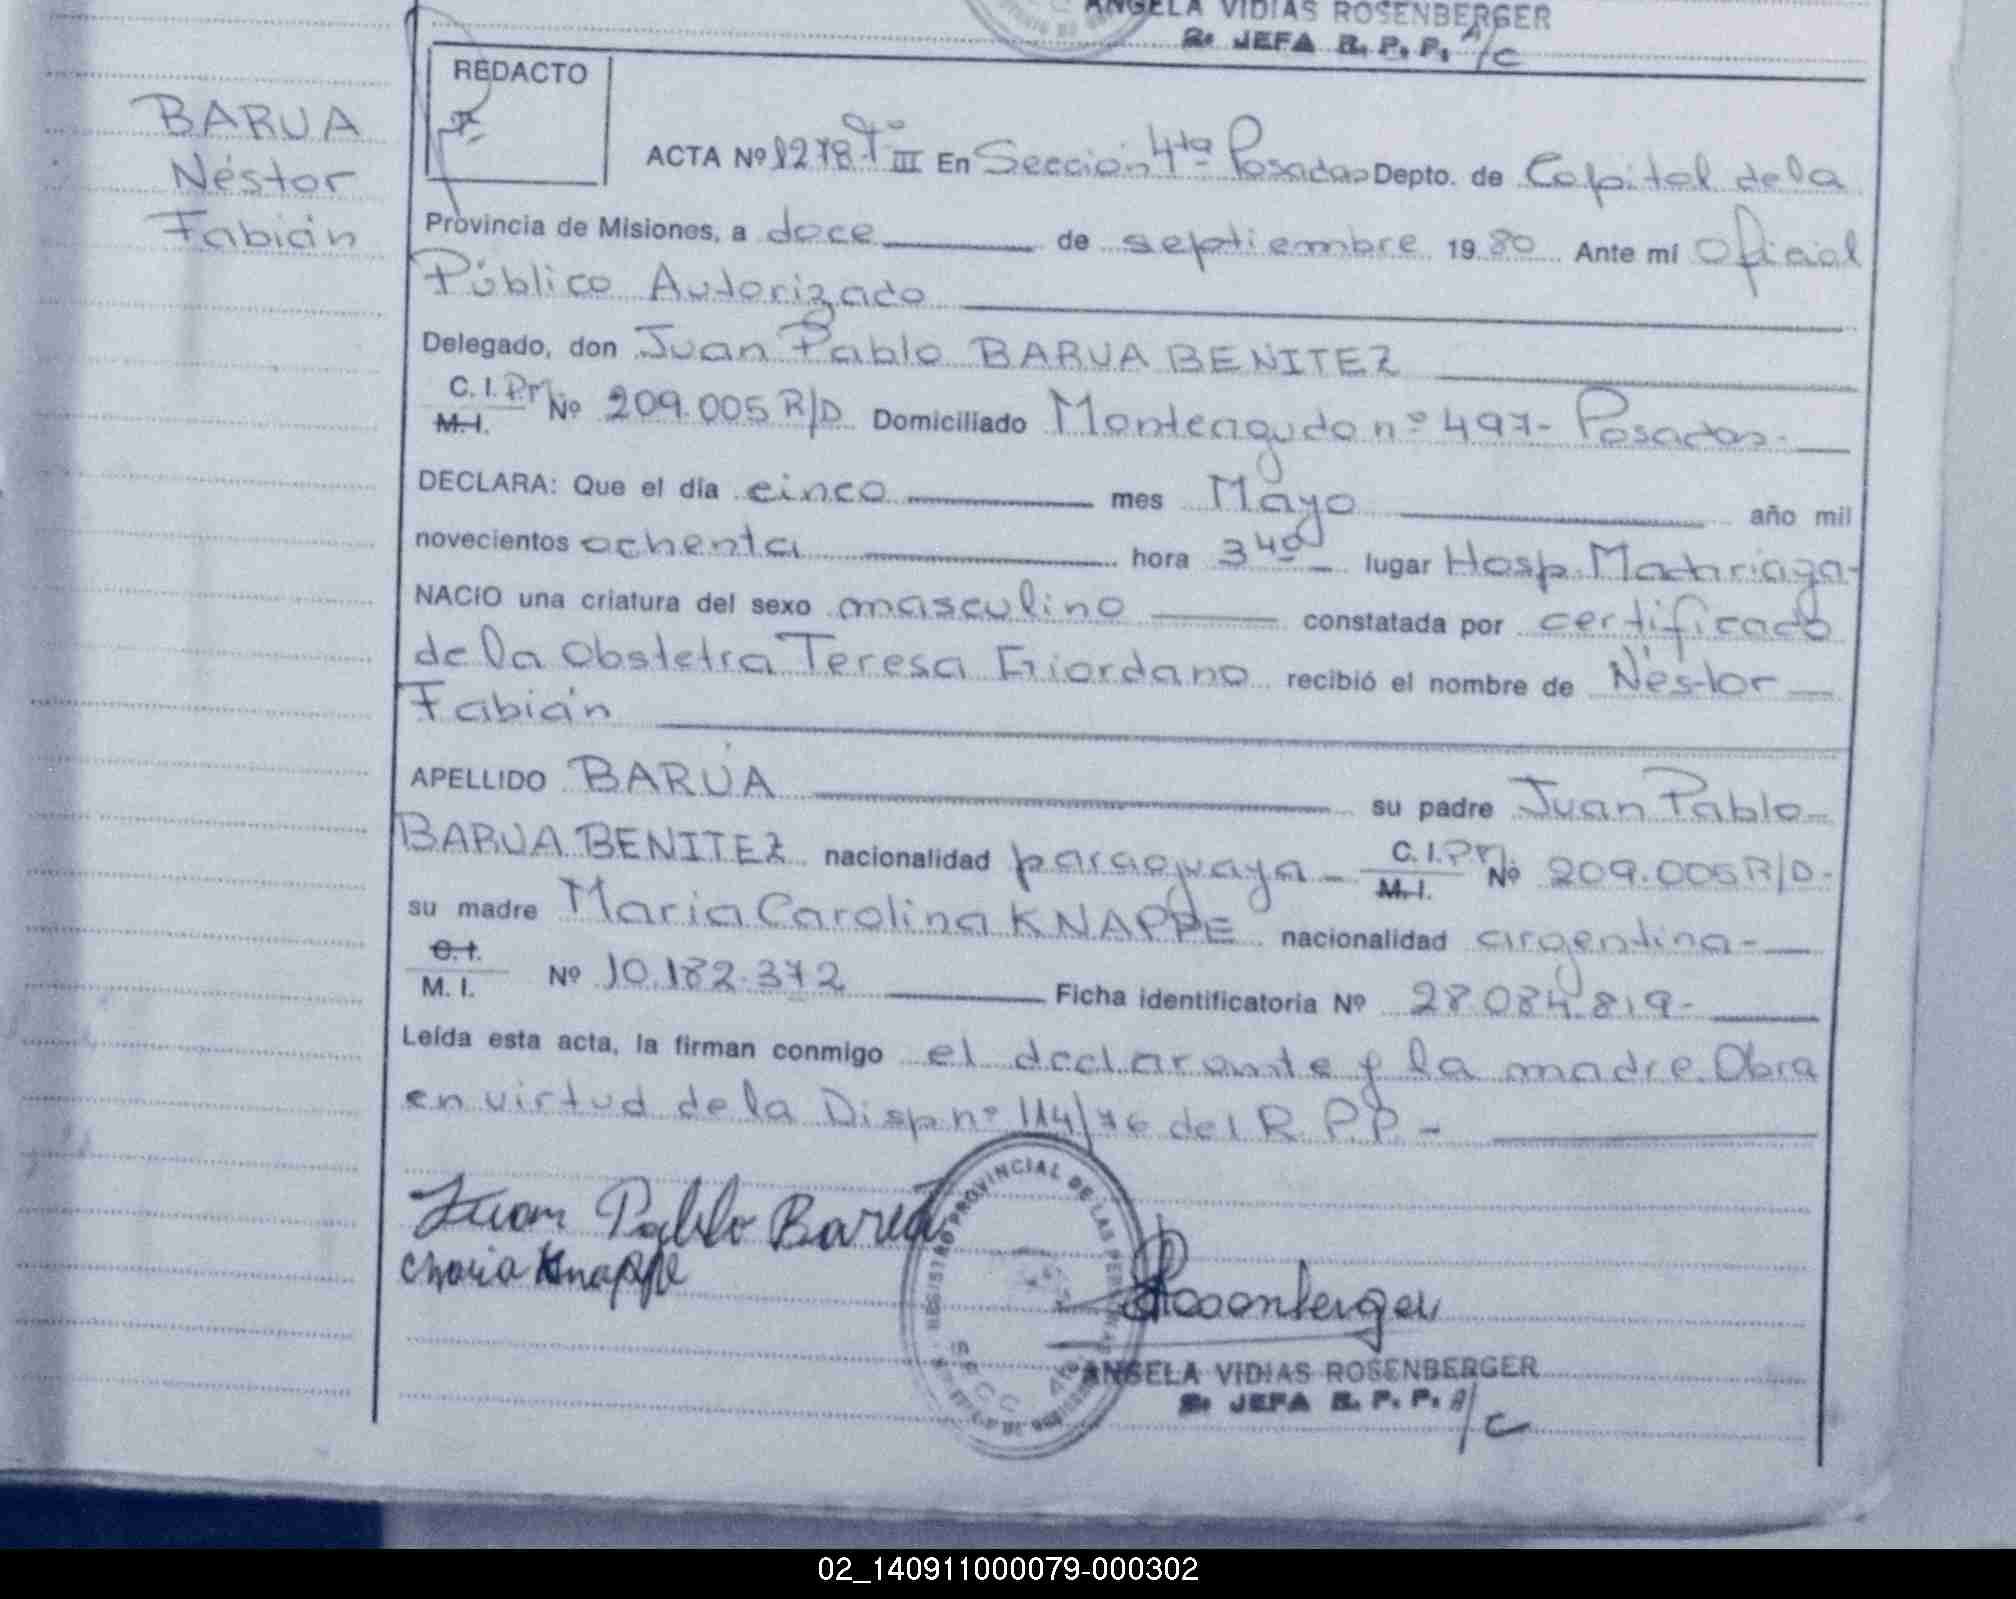 ANGELA VIDIAS ROSENBERGER
2a JEFA R. P. P. A/C
REDACTO
BARUA
Néstor
Fabián
ACTA Nº 1278 Tº III En Sección 4ta Posadas Depto. de Capital de la
Provincia de Misiones, a doce de septiembre 1980 Ante mí Oficial
Público Autorizado
Delegado, don Juan Pablo BARUA BENITEZ
C. I. P.M.
M. I.
Nº 209.005 R/D Domiciliado Monteagudo nº 497- Posadas.
DECLARA: Que el día cinco mes Mayo año mil
novecientos ochenta hora 3 40 lugar Hosp. Madariaga-
NACIO una criatura del sexo masculino constatada por certificado
de la Obstetra Teresa Giordano recibió el nombre de Néstor
Fabián
APELLIDO BARÚA su padre Juan Pablo
BARUA BENITEZ nacionalidad paraguaya - C. I. P.M.
M. I.
Nº 209.005 R/D-
su madre Maria Carolina KNAPPE nacionalidad argentina-
C. I.
M. I. Nº 10.182.372 Ficha identificatoria Nº 28.084.819-
Leída esta acta, la firman conmigo el declarante y la madre. Obra
en virtud de la Disp nº 114/76 del R.P.P.-
Juan Pablo Barua
Maria Knappe
REGISTRO PROVINCIAL DE LAS PERSONAS
SECC. 4a
Rosenberger
ANGELA VIDIAS ROSENBERGER
2a JEFA R. P. P. A/C
02_140911000079-000302